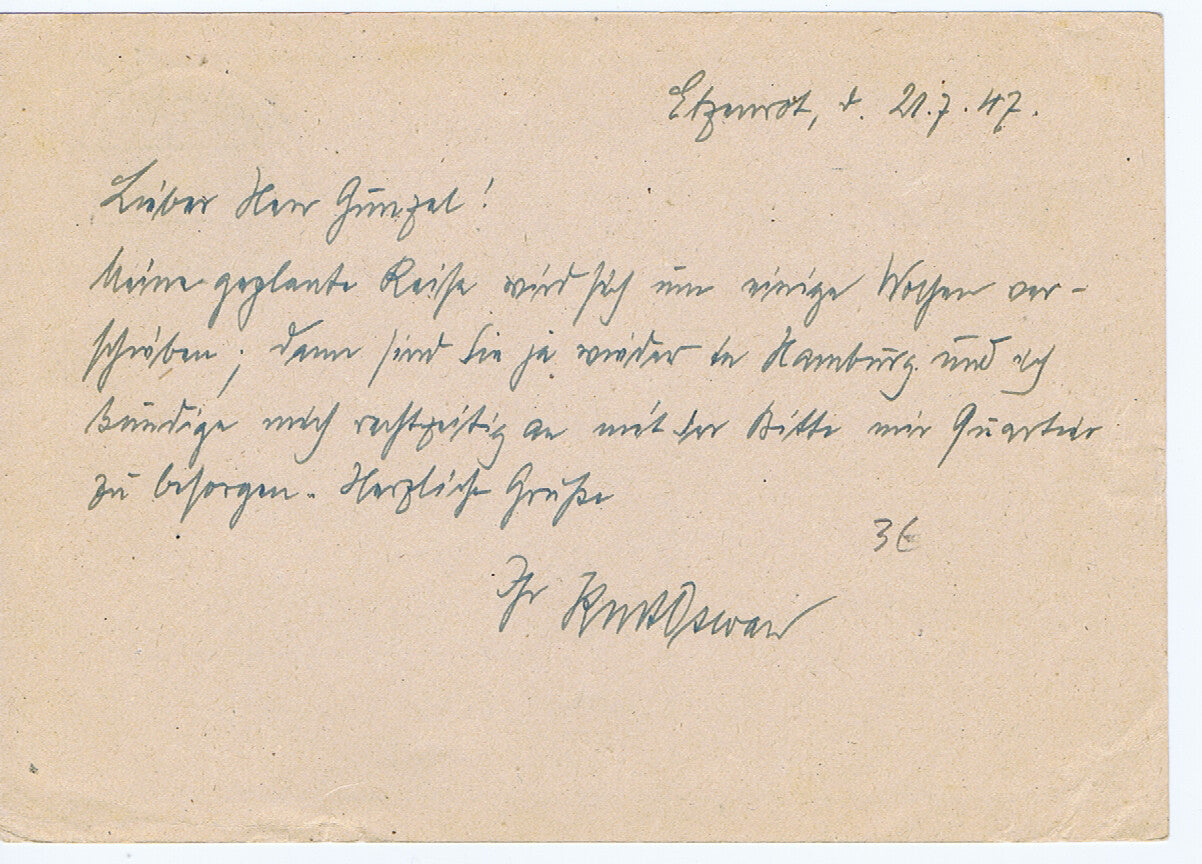 Etzenrot, d. 21.7.47.
Lieber Herr Gunzel!
Meine geplante Reise wird sich um einige Wochen ver-
schieben; dann sind Sie ja wieder in Hamburg und ich
kündige mich rechtzeitig an mit der Bitte mir Quartier
zu besorgen. Herzliche Grüße
Ihr Kurt
3€